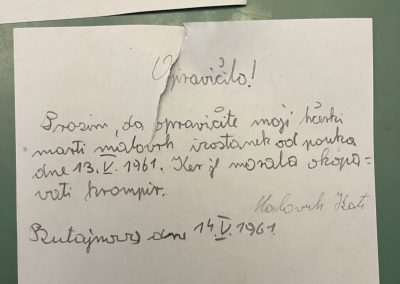 Opravičilo!
Prosim, da opravičite moji hčerki
marti malovrh izostanek od pouka
dne 13.V. 1961. Ker je morala okopa-
vati krompir.
Malovrh Kati
Butajnova dne 14.V.1961.